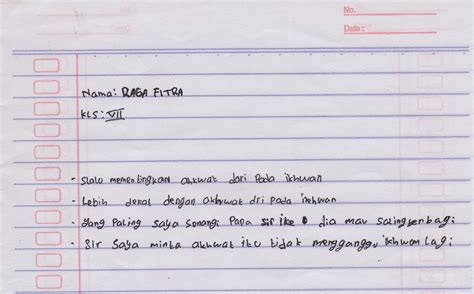 No.
Date:
Nama: RAGA FITRA
KLS: VII
- Slalu mementingkan akhwat dari pada ikhwan
- Lebih dekat dengan akhwat dri pada ikhwan
- Yang Paling Saya Senangi Pada Sir ike dia mau saling berbagi
- Sir Saya minta akhwat itu tidak mengganggu ikhwan lagi